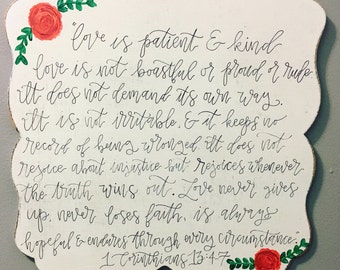 "Love is patient & kind
love is not boastful or proud or rude
it does not demand its own way.
it is not irritable, & it keeps no
record of being wronged it does not
rejoice about injustice but rejoices whenever
the truth wins out. Love never gives
up, never loses faith, is always
hopeful & endures through every circumstance"
1 Corinthians 13:4-7